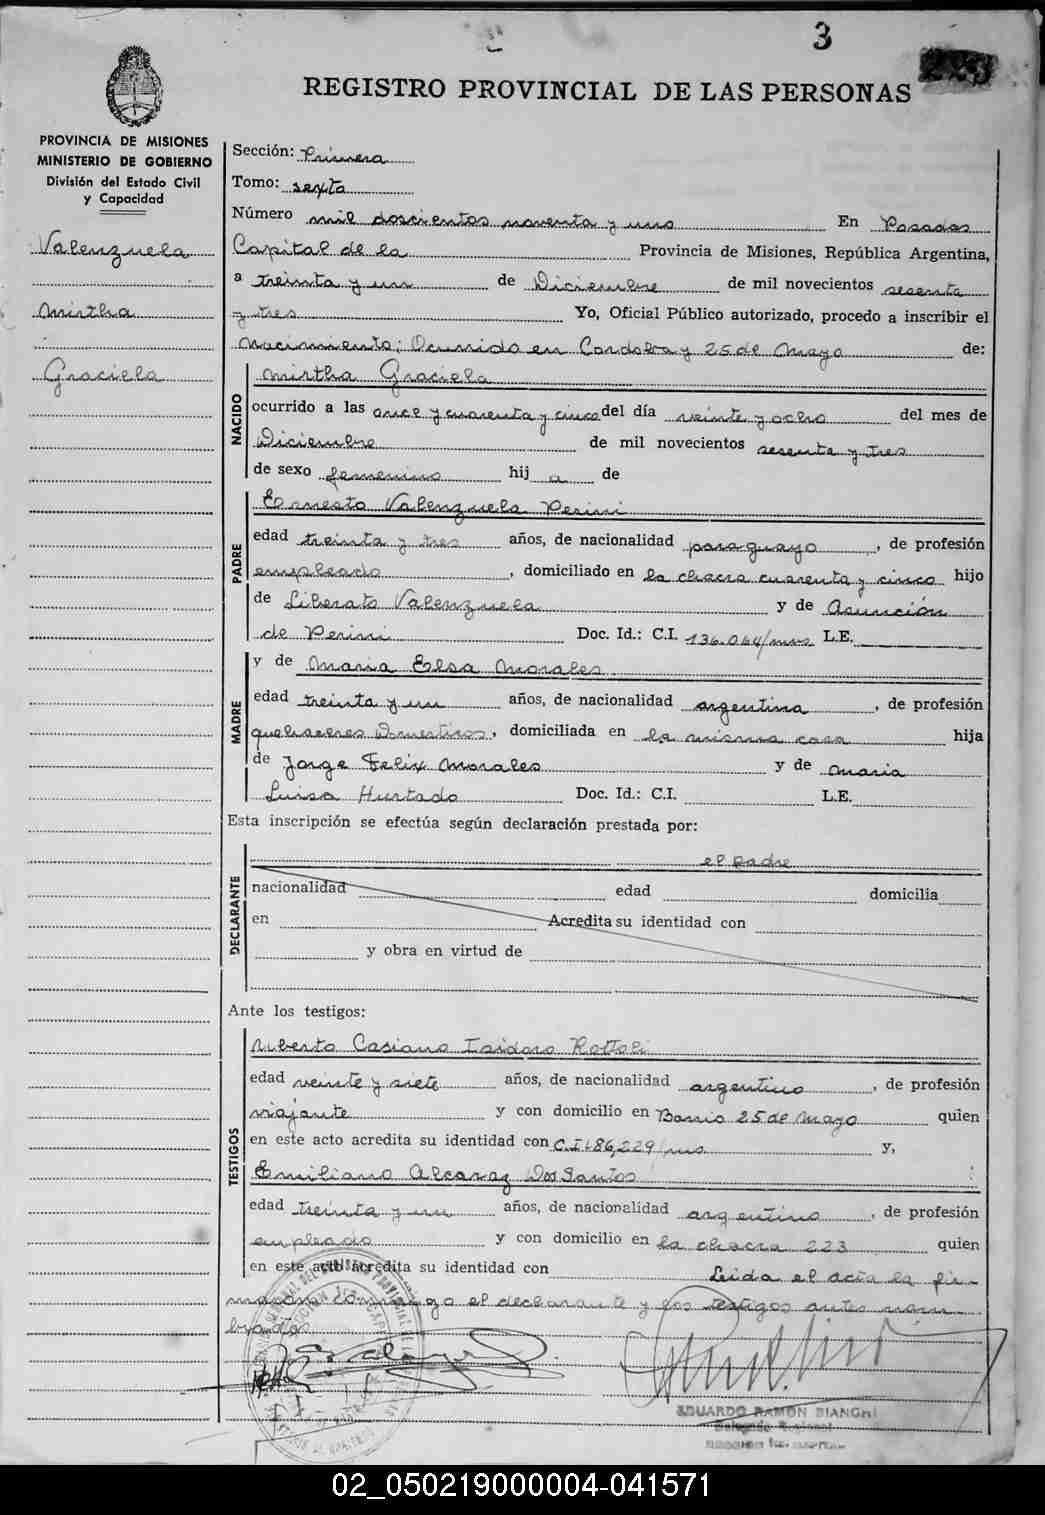 3
223
REGISTRO PROVINCIAL DE LAS PERSONAS
PROVINCIA DE MISIONES
MINISTERIO DE GOBIERNO
División del Estado Civil
y Capacidad
Valenzuela
Mirtha
Graciela
Sección: Primera
Tomo: sexto
Número mil doscientos noventa y uno En Posadas
Capital de la Provincia de Misiones, República Argentina,
a treinta y un de Diciembre de mil novecientos sesenta
y tres Yo, Oficial Público autorizado, procedo a inscribir el
Nacimiento; Ocurrido en Cordoba y 25 de Mayo de:
NACIDO
Mirtha Graciela
ocurrido a las once y cuarenta y cinco del día veinte y ocho del mes de
Diciembre de mil novecientos sesenta y tres
de sexo femenino hij a de
PADRE
Ernesto Valenzuela Perini
edad treinta y tres años, de nacionalidad paraguayo, de profesión
empleado, domiciliado en la chacra cuarenta y cinco hijo
de Liberato Valenzuela y de Asunción
de Perini Doc. Id.: C.I. 136.064/mns L.E.
MADRE
y de Maria Elsa Morales
edad treinta y un años, de nacionalidad argentina, de profesión
quehaceres Domesticos, domiciliada en la misma casa hija
de Jorge Felix Morales y de Maria
Luisa Hurtado Doc. Id.: C.I. L.E.
Esta inscripción se efectúa según declaración prestada por:
DECLARANTE
el padre
nacionalidad edad domicilia
en Acredita su identidad con
y obra en virtud de
Ante los testigos:
TESTIGOS
Alberto Casiano Isidoro Rottoli
edad veinte y siete años, de nacionalidad argentino, de profesión
viajante y con domicilio en Barrio 25 de Mayo quien
en este acto acredita su identidad con C.I. 186,229/mns y,
Emiliano Alcaraz Dos Santos
edad treinta y un años, de nacionalidad argentino, de profesión
empleado y con domicilio en la chacra 223 quien
en este acto acredita su identidad con Leida el acta la fir-
maron conmigo el declarante y los testigos antes nom-
brados
EDUARDO RAMON BIANGHI
Delegado Regional
02_050219000004-041571